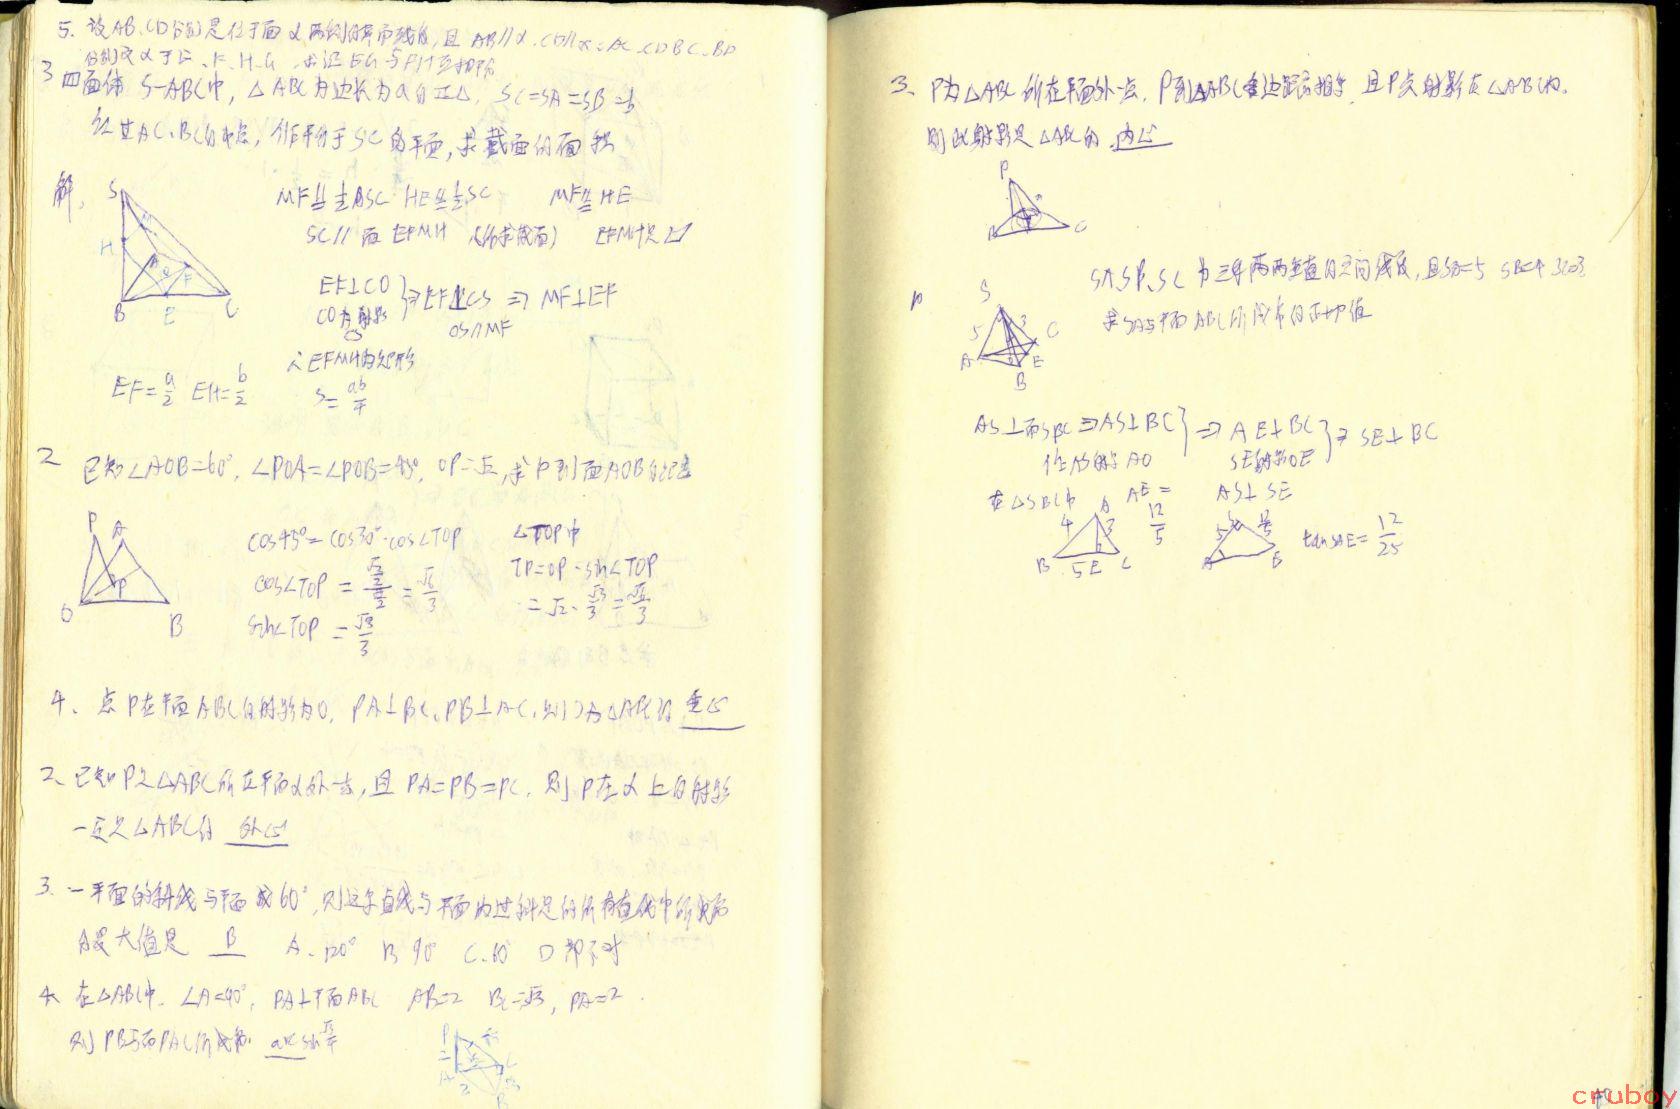 5. 设AB、CD分别是位于面α两侧的异面线段,且AB//α,CD//α,AC、CD、BC、BD
分别交α于E、F、H、G
3 四面体 S-ABC中,△ABC为边长为a的正△,SC=SA=SB=b
过AC、BC的中点,作平行于SC的平面,求截面的面积
解:
S
M
H
A
O
F
B
E
C
MF∥=½SC HE∥=½SC MF∥=HE
SC//面 EFMH (所求截面) EFMH是▱
EF⊥CO
CO为射影
⇒EF⊥CS ⇒ MF⊥EF
CS//MF
∴EFMH为矩形
EF=a/2 EH=b/2 S=ab/4
2 已知∠AOB=60°,∠POA=∠POB=45°,OP=√2,求P到面AOB的距离
P A
O P B
cos45°=cos30°·cos∠TOP △TOP中
cos∠TOP = (√2/2)/(√3/2) = √6/3 TP=OP·sin∠TOP
sin∠TOP = √3/3 =√2·√3/3=√6/3
4、点P在平面ABC的射影为O,PA⊥BC、PB⊥AC,则O为△ABC的 垂心
2、已知P是△ABC所在平面α外一点,且 PA=PB=PC,则P在α上的射影
一定是△ABC的 外心
3. 一平面的斜线与平面成60°,则这条直线与平面内过斜足的所有直线中所成的
角最大值是 B A、120° B 90° C、60° D 都不对
4、在△ABC中,∠A=90°,PA⊥平面ABC AB=2 BC=√3,PA=2
则PB与面PAC所成角 arcsin√3/4
3、P为△ABC所在平面外一点,P到△ABC各边距离相等,且P点射影在△ABC内,
则此射影是△ABC的 内心
P
B C
SA、SB、SC为三条两两垂直的空间线段,且SA=5 SB=4 SC=3
求SA与平面ABC所成角的正切值
S
5 3 C
A E
B
AS⊥面SBC⇒AS⊥BC
作AS射影AO
⇒ AE⊥BC
SE射影OE
⇒ SE⊥BC
在△SBC中 AE=12/5 AS⊥SE
4 A 3
B 5 E C
5
A E
tanSAE=12/25
cruboy